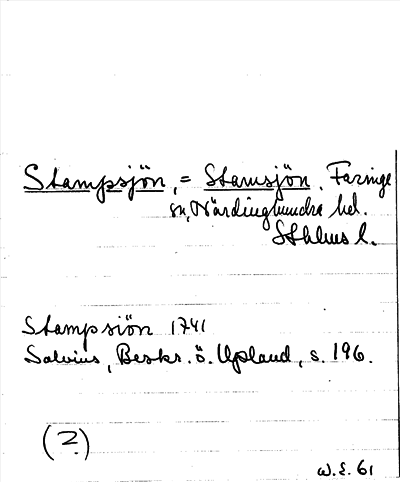 Stampsjön, = Stamsjön, Faringe
sn, Närdinghundra hd.
Sthlms l.
Stampsiön 1741
Salvius, Beskr. ö. Upland, s. 196.
(?)
W.E. 61